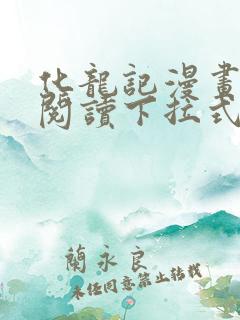 化龍記漫畫
閱讀下拉式
蘭永良
未經同意禁止轉載